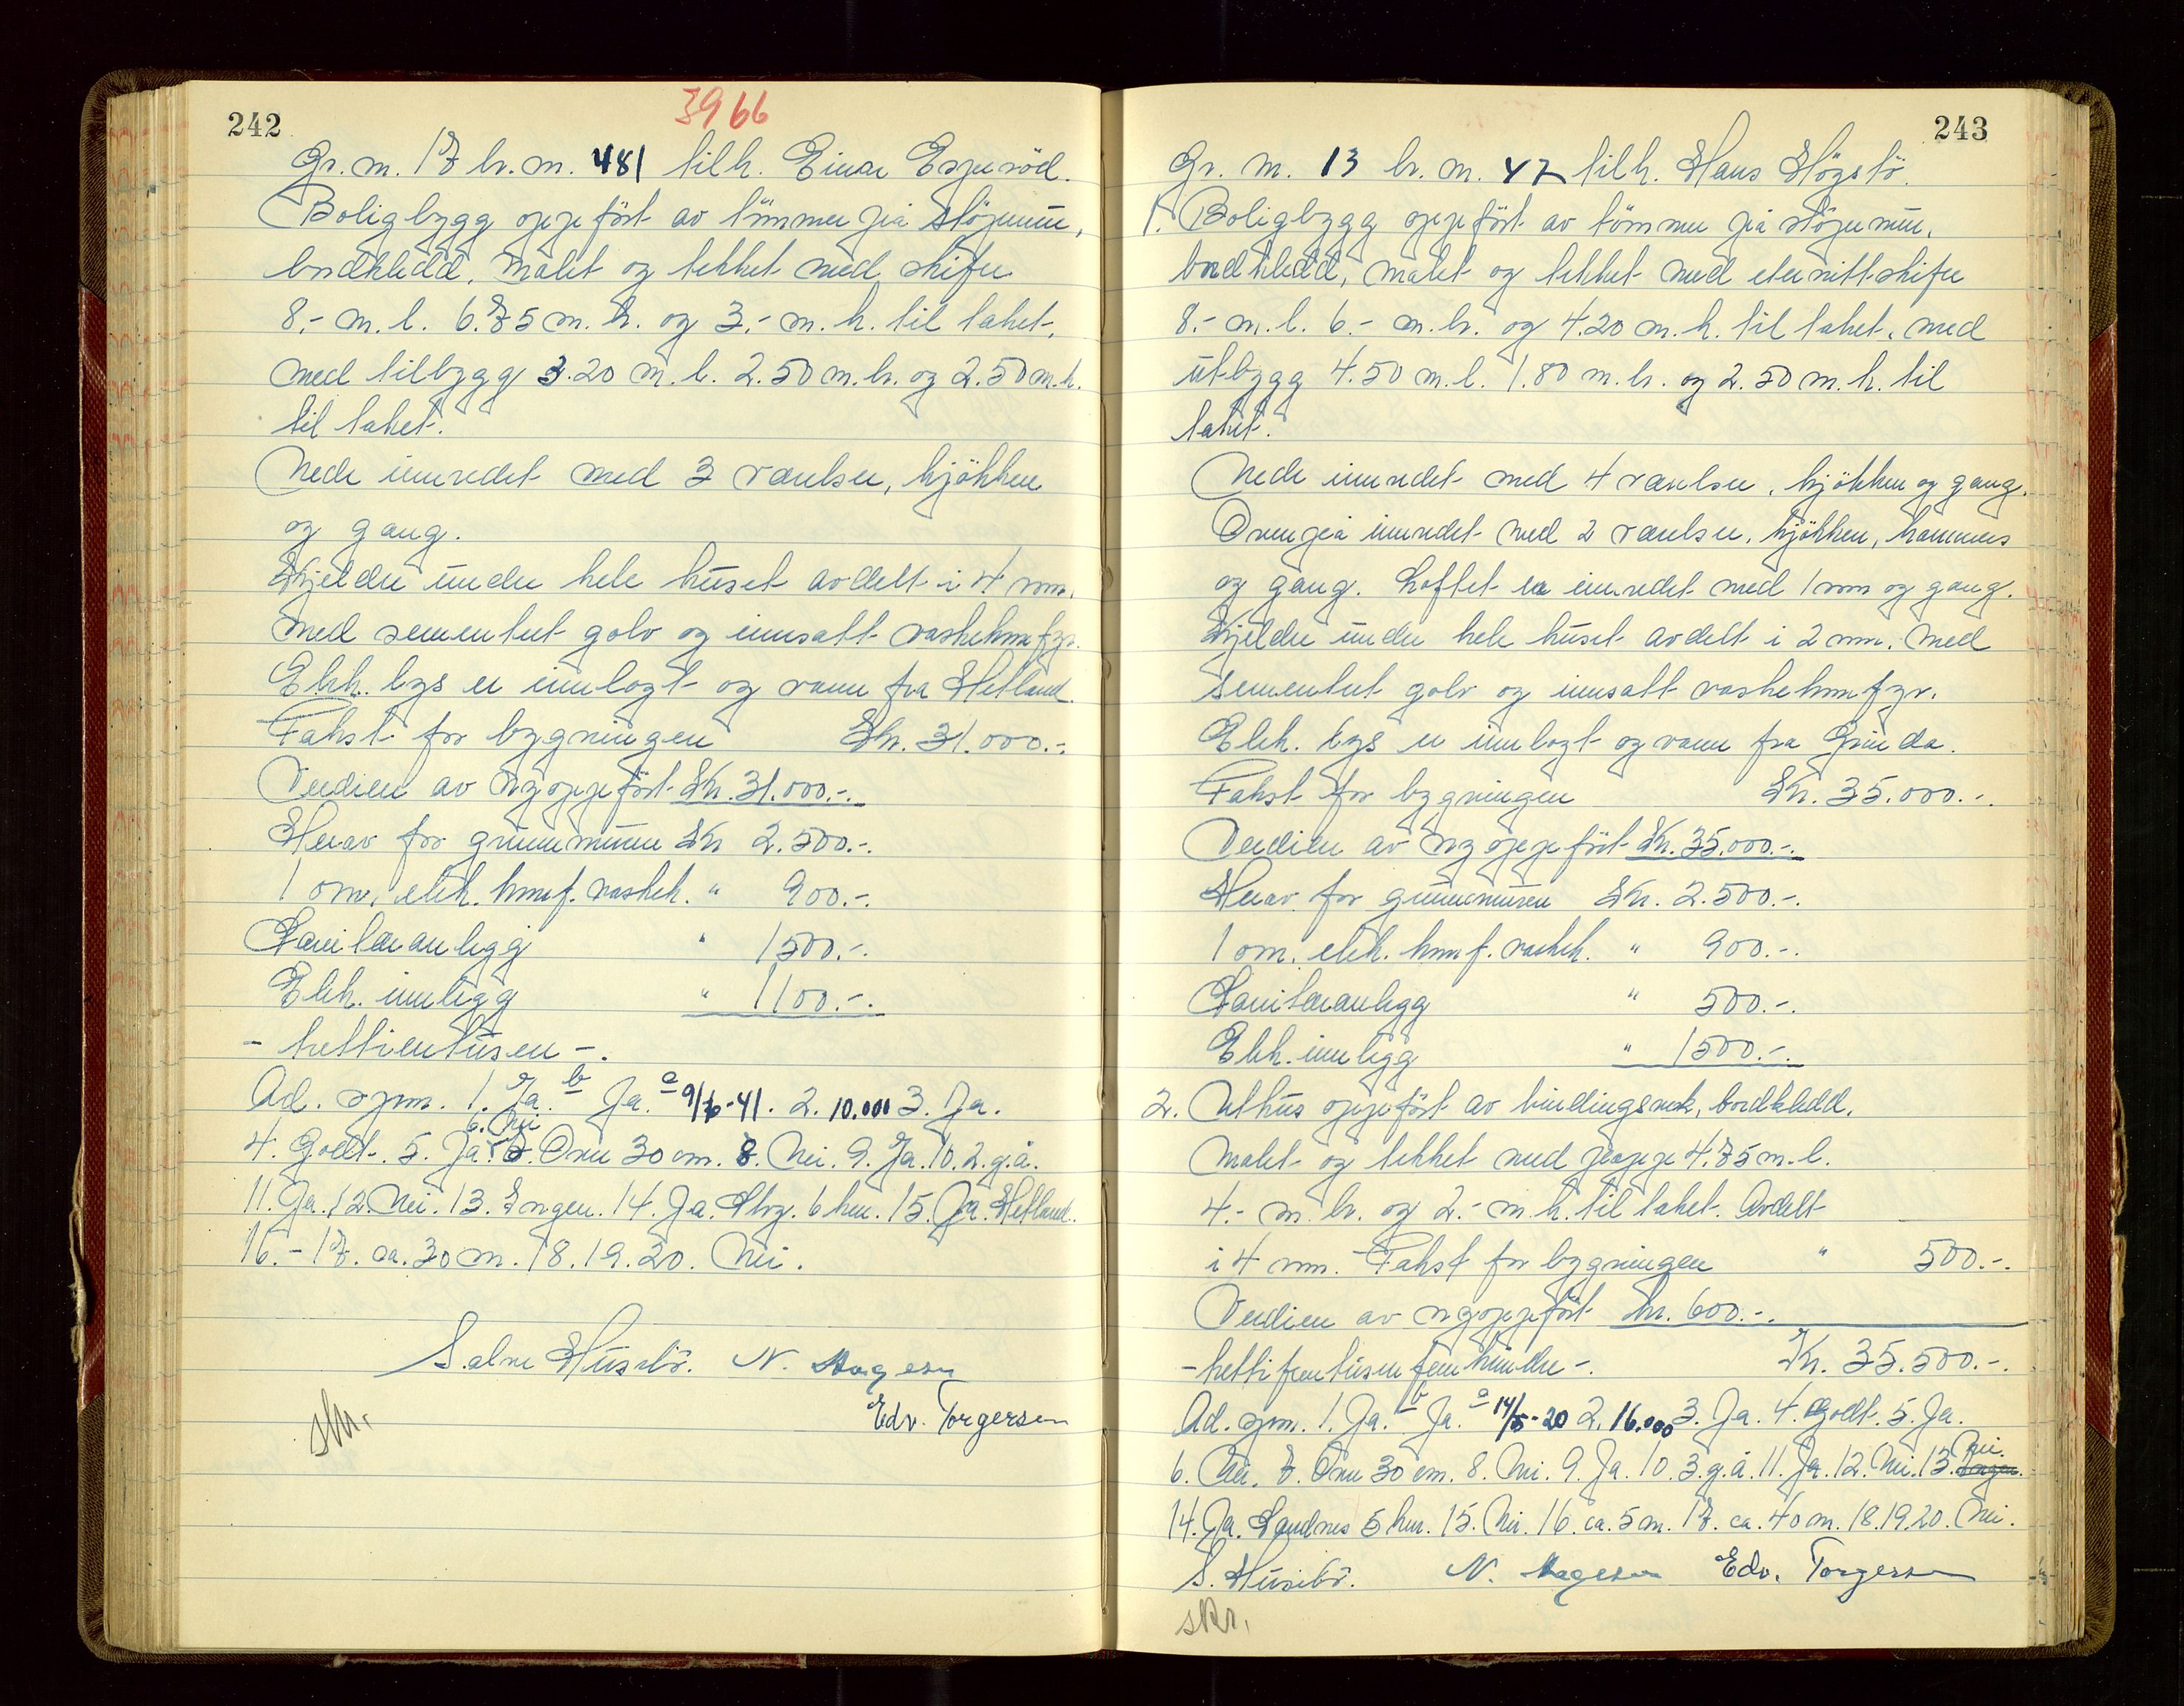 242
3966
Gr. n. 17 br. n. 481 tilh. Einar Esperöd.
Boligbygg oppfört av tömmer på stöpemur,
bordkledd, malet og tekket med skifer
8.- m. l. 6.75 m. br. og 3.- m. h. til taket.
med tilbygg 3.20 m. l. 2.50 m. br. og 2.50 m. h.
til taket.
Nede innredet med 3 værelser, kjökken
og gang.
Kjelder under hele huset avdelt i 4 rom.
med sementert golv og innsatt vaskekomfyr.
Elek. lys er innlagt og vann fra Hetland.
Takst for bygningen Kr. 31.000.-.
Verdien av nyoppfört Kr. 31.000.-.
Herav for grunnmuren Kr 2.500.-.
1 omr. elek. komf. vaskek. " 900.-.
Sanitæranlegg " 1500.-.
Elek. innlegg " 1100.-.
- trettientusen -.
Ad. spm. 1. Ja. b Ja. a 9/6-41. 2. 10.000 3. Ja.
6. Nei
4. Godt. 5. Ja. 7. Over 30 cm. 8. Nei. 9. Ja. 10. 2. g. å.
11. Ja. 12. Nei. 13. Ingen. 14. Ja. Stvg. 6 km. 15. Ja. Hetland.
16. - 17. ca. 30 m. 18. 19. 20. Nei.
S. alne Husebö. N. Aagesen
Edv. Torgersen
skr.
243
Gr. n. 13 br. n. 47 tilh. Hans Högstö.
1. Boligbygg oppfört av tömmer på stöpemur,
bordkledd, malet og tekket med eternittskifer
8.- m. l. 6.- m. br. og 4.20 m. h. til taket. med
utbygg 4.50 m. l. 1.80 m. br. og 2.50 m. h. til
taket.
Nede innredet med 4 værelser, kjökken og gang.
Ovenpå innredet med 2 værelser, kjökken, kammers
og gang. Loftet er innredet med 1 rom og gang.
Kjelder under hele huset avdelt i 2 rom. med
sementert golv og innsatt vaskekomfyr.
Elek. lys er innlagt og vann fra Grinda.
Takst for bygningen Kr. 35.000.-.
Verdien av nyoppfört Kr. 35.000.-.
Herav for grunnmuren Kr. 2.500.-.
1 om. elek. komf. vaskek. " 900.-.
Sanitæranlegg " 500.-.
Elek. innlegg " 1500.-.
2. Uthus oppfört av bindingsverk, bordkledd.
malet og tekket med papp 4.75 m. l.
4.- m. br. og 2.- m. h. til taket. Avdelt
i 4 rom. Takst for bygningen " 500.-.
Verdien av nyoppfört kr. 600.-.
- trettifemtusenfemhundre -. Kr. 35.500.-.
Ad. spm. 1. Ja. b Ja. a 14/5-20 2. 16.000 3. Ja. 4. Godt. 5. Ja.
6. Nei. 7. Over 30 cm. 8. Nei. 9. Ja. 10. 3. g. å. 11. Ja. 12. Nei. 13. Ingen. Nei.
14. Ja. Sandnes 5 km. 15. Nei. 16. ca. 5 m. 17. ca. 40 m. 18. 19. 20. Nei.
S. Husebö. N. Aagesen Edv. Torgersen
skr.